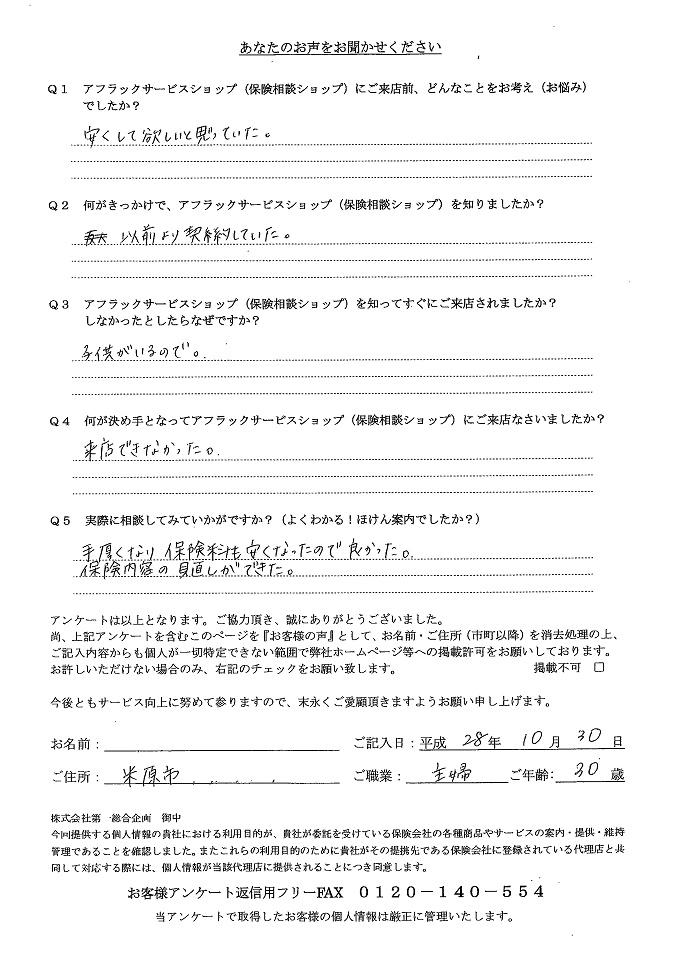 あなたのお声をお聞かせください
Q1 アフラックサービスショップ（保険相談ショップ）にご来店前、どんなことをお考え（お悩み）
でしたか？
安くして欲しいと思っていた。
Q2 何がきっかけで、アフラックサービスショップ（保険相談ショップ）を知りましたか？
以前より契約していた。
Q3 アフラックサービスショップ（保険相談ショップ）を知ってすぐにご来店されましたか？
しなかったとしたらなぜですか？
子供がいるので。
Q4 何が決め手となってアフラックサービスショップ（保険相談ショップ）にご来店なさいましたか？
来店できなかった。
Q5 実際に相談してみていかがですか？（よくわかる！ほけん案内でしたか？）
手厚くなり保険料も安くなったので良かった。
保険内容の見直しができた。
アンケートは以上となります。ご協力頂き、誠にありがとうございました。
尚、上記アンケートを含むこのページを『お客様の声』として、お名前・ご住所（市町以降）を消去処理の上、
ご記入内容からも個人が一切特定できない範囲で弊社ホームページ等への掲載許可をお願いしております。
お許しいただけない場合のみ、右記のチェックをお願い致します。 掲載不可 □
今後ともサービス向上に努めて参りますので、末永くご愛顧頂きますようお願い申し上げます。
お名前： ご記入日：平成 28年 10月 30日
ご住所： 米原市 ご職業： 主婦 ご年齢： 30歳
株式会社第一総合企画 御中
今回提供する個人情報の貴社における利用目的が、貴社が委託を受けている保険会社の各種商品やサービスの案内・提供・維持
管理であることを確認しました。またこれらの利用目的のために貴社がその提携先である保険会社に登録されている代理店と共
同して対応する際には、個人情報が当該代理店に提供されることにつき同意します。
お客様アンケート返信用フリーFAX 0120-140-554
当アンケートで取得したお客様の個人情報は厳正に管理いたします。